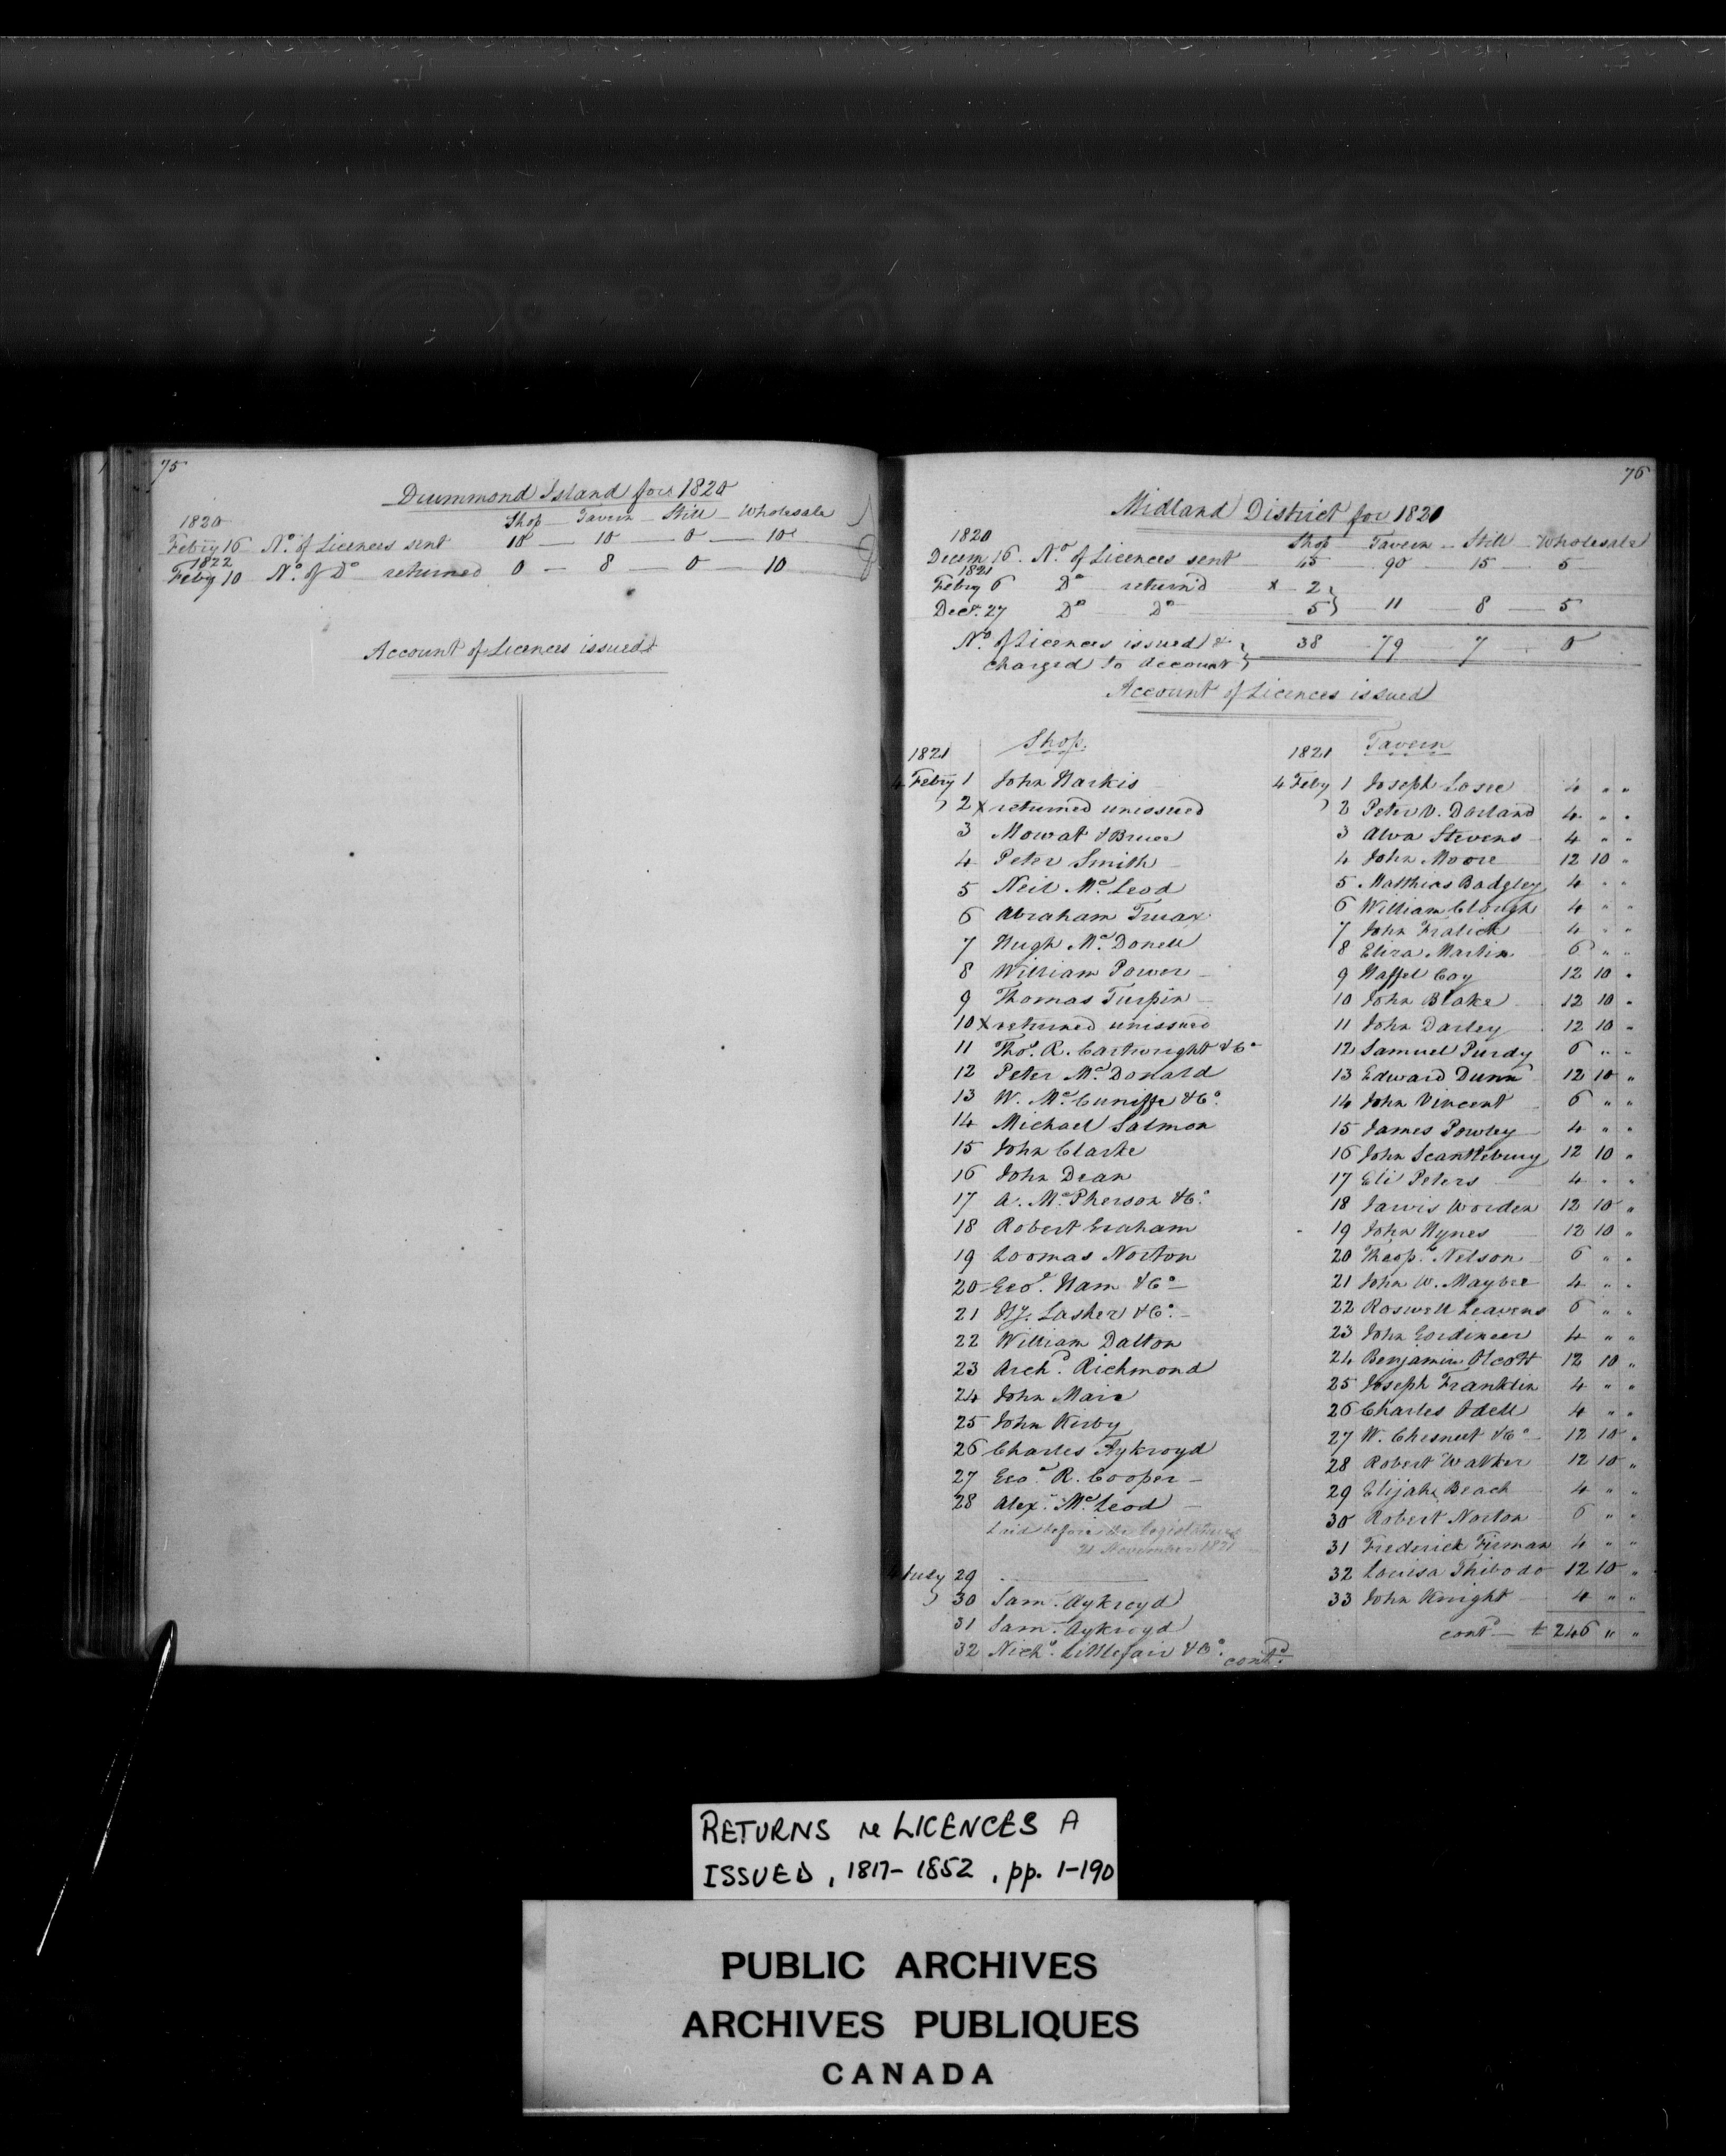 75
Drummond Island for 1820
1820 Shop — Tavern — Still — Wholesale
Febry 16 No. of Licences sent 10 — 10 — 0 — 10
1822
Feby 10 No. of Do returned 0 — 8 — 0 — 10
Account of Licences issued
76
Midland District for 1820
1820 Shop Tavern — Still — Wholesale
Decem 16. No. of Licences sent 45 90 15 5
1821
Febry 6 Do returnd x 2
Decr. 27 Do Do 5 11 8 5
No. of Licences issued & charged to account 38 79 7 0
Account of Licences issued
1821 Shop.
4 Febry 1 John Harkis
2 x returned unissued
3 Mowat & Bruce
4 Peter Smith
5 Neil Mc.Leod
6 Abraham Truax
7 Hugh Mc.Donell
8 William Power
9 Thomas Turpin
10 x returned unissued
11 Thos. R. Cartwright & Co
12 Peter Mc.Donald
13 W. Mc.Cuniffe & Co.
14 Michael Salmon
15 John Clarke
16 John Dean
17 A. Mc.Pherson & Co.
18 Robert Graham
19 Loomas Norton
20 Geo. Ham & Co
21 Hy. Lasher & Co.
22 William Dalton
23 Archd. Richmond
24 John Mair
25 John Kirby
26 Charles Aykroyd
27 Geo. R. Cooper
28 Alex. Mc.Leod
Laid before the Legislature
21 November 1821
July 29
30 Saml. Aykroyd
31 Saml. Aykroyd
32 Nichs. Littlefair & Co.
contd.
1821 Tavern
4 Feby 1 Joseph Losee 4 " "
2 Peter V. Dorland 4 " "
3 Alva Stevens 4 " "
4 John Moore 12 10 "
5 Matthias Badgley 4 " "
6 William Clough 4 " "
7 John Fralick 4 " "
8 Eliza Martin 6 " "
9 Haffel Coy 12 10 "
10 John Blake 12 10 "
11 John Darley 12 10 "
12 Samuel Purdy 6 " "
13 Edward Dunn 12 10 "
14 John Vincent 6 " "
15 James Powley 4 " "
16 John Scantlebury 12 10 "
17 Eli Peters 4 " "
18 Jarvis Worden 12 10 "
19 John Hynes 12 10 "
20 Theops. Nelson 6 " "
21 John W. Maybee 4 " "
22 Roswell Leavens 6 " "
23 John Gordineer 4 " "
24 Benjamin Olcott 12 10 "
25 Joseph Franklin 4 " "
26 Charles Odell 4 " "
27 W. Chesnut & Co 12 10 "
28 Robert Walker 12 10 "
29 Elijah Beach 4 " "
30 Robert Norton 6 " "
31 Frederick Firman 4 " "
32 Louisa Thibodo 12 10 "
33 John Knight 4 " "
contd £ 246 " "
RETURNS re LICENCES A
ISSUED, 1817-1852, pp. 1-190
PUBLIC ARCHIVES
ARCHIVES PUBLIQUES
CANADA